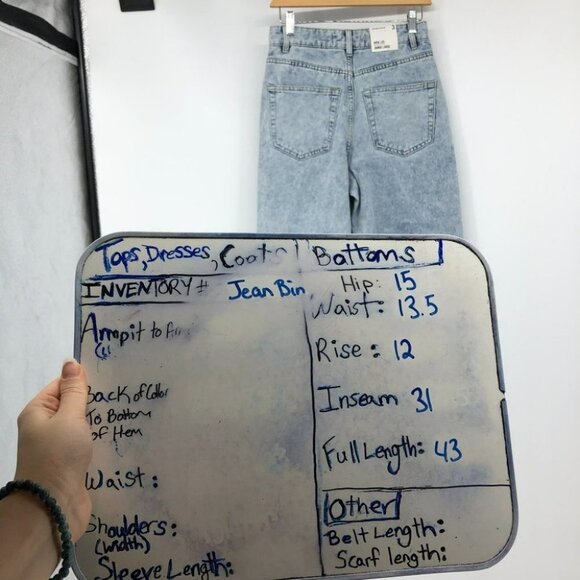 Tops, Dresses, Coat
INVENTORY # Jean Bin
Armpit to
Back of Collar
To Bottom
of Hem
Waist:
Shoulders:
(width)
Sleeve Length:
Bottoms
Hip: 15
Waist: 13.5
Rise: 12
Inseam 31
Full Length: 43
Other
Belt Length:
Scarf length: